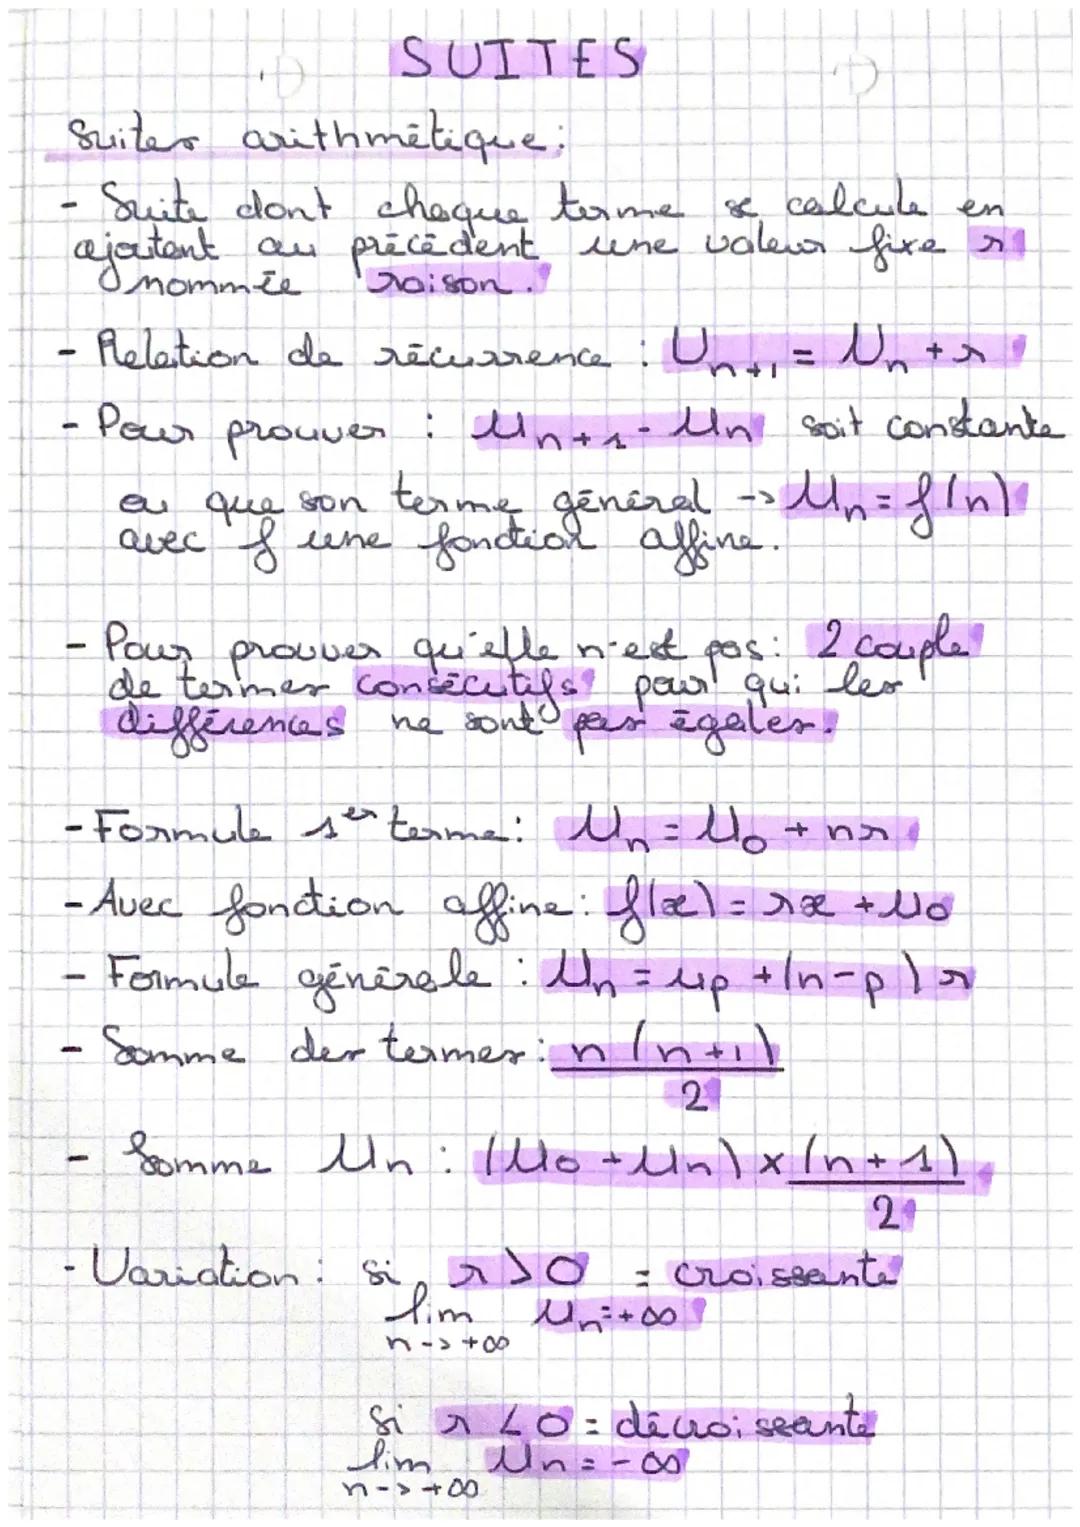 SUITES
Suites arithmétique :
- Suite dont chaque terme se calcule en
ajoutant au précédent une valeur fixe r
nommée raison.
- Relation de récurrence : Un+1 = Un + r
- Pour prouver : Un+1 - Un soit constante
ou que son terme général -> Un = f(n)
avec f une fonction affine.
- Pour prouver qu'elle n'est pas : 2 couple
de termes consécutifs pour qui les
différences ne sont pas égales.
- Formule 1er terme : Un = U0 + nr
- Avec fonction affine : f(x) = rx + U0
- Formule générale : Un = up + (n-p) r
- Somme des termes : n (n+1)
2
- Somme Un : (U0 + Un) x (n + 1)
2
- Variation : si r > 0 = croissante
lim Un = +∞
n -> +∞
si r < 0 = décroissante
lim Un = -∞
n -> +∞